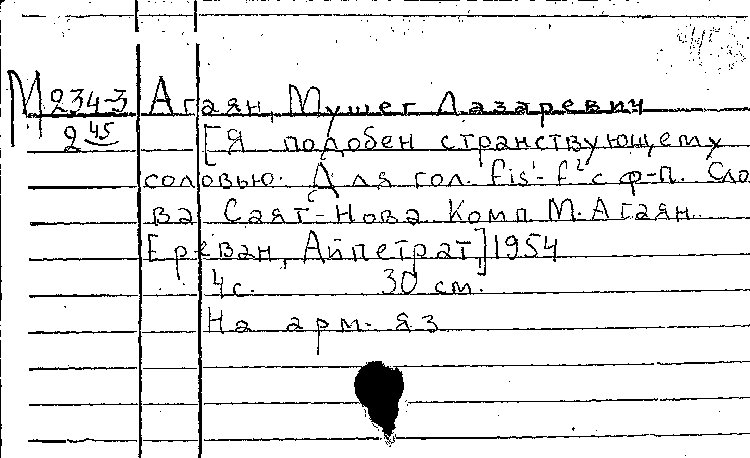 М 234-3 Агаян, Мушег Лазаревич
2 45 [Я подобен странствующему
соловью. Для гол. fis¹-f² с ф-п. Сло
ва Саят-Нова. Комп М. Агаян.
Ереван, Айпетрат,] 1954
4 с. 30 см.
На арм. яз